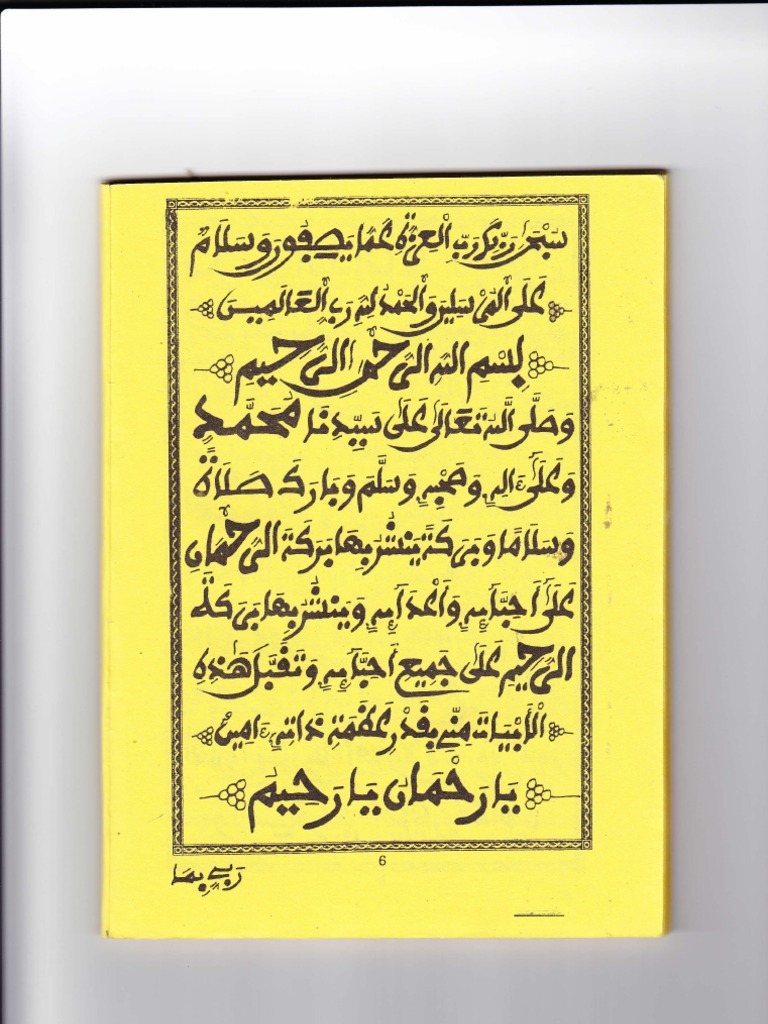 سُبْحَٰنَ رَبِّكَ رَبِّ الْعِزَّةِ عَمَّا يَصِفُونَ وَسَلَامٌ
عَلَى الْمُرْسَلِينَ وَالْحَمْدُ لِلهِ رَبِّ الْعَالَمِينَ
بِسْمِ اللهِ الرَّحْمٰنِ الرَّحِيمِ
وَصَلَّى اللهُ تَعَالَى عَلَى سَيِّدِنَا مُحَمَّدٍ
وَعَلَى ءَالِهِ وَصَحْبِهِ وَسَلَّمَ وَبَارَكَ صَلَاةً
وَسَلَامًا وَبَرَكَةً يَنْشُرُ بِهَا بَرَكَةَ الرَّحْمَانِ
عَلَى أَحِبَّآئِهِ وَأَعْدَآئِهِ وَيَنْشُرُ بِهَا بَرَكَةَ
الرَّحِيمِ عَلَى جَمِيعِ أَحِبَّآئِهِ وَتَقَبَّلْ هَٰذِهِ
الْأَبْيَاتَ مِنِّي بِقَدْرِ عَظَمَةِ ذَاتِهِ ءَامِينَ
يَا رَحْمَانُ يَا رَحِيمُ
6
رَبِّي بِمَا